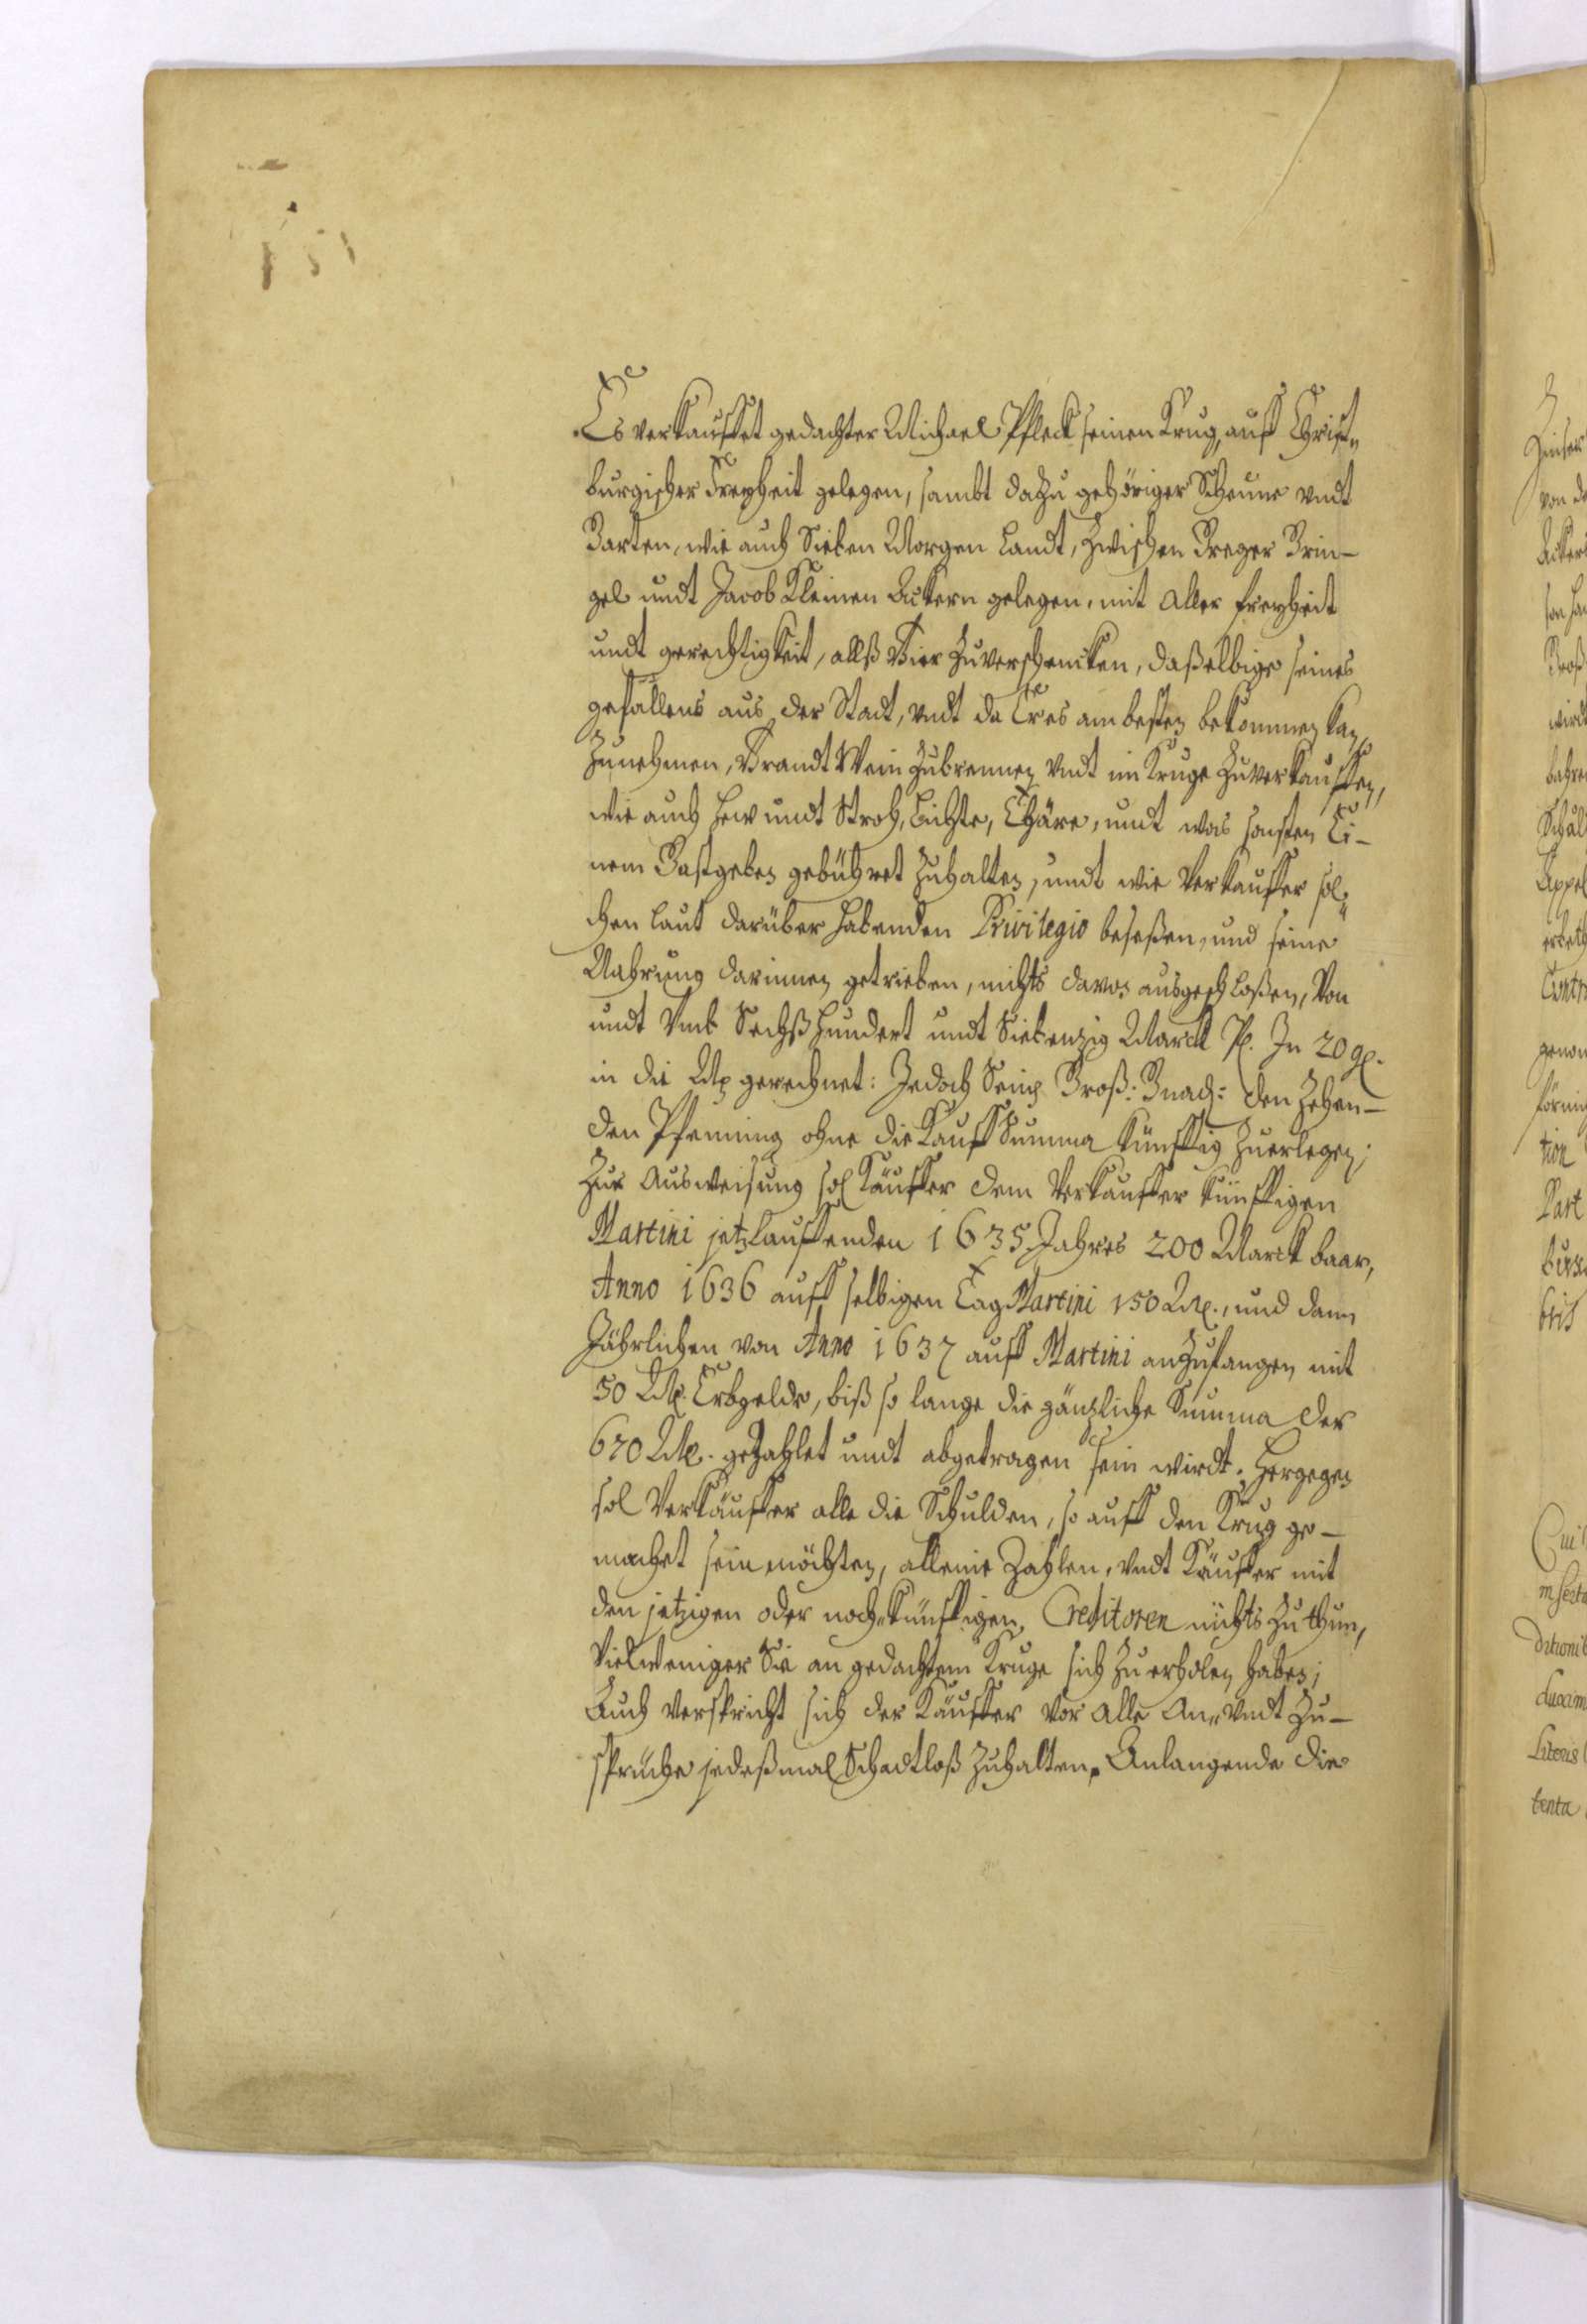 Es verkauffet gedachter Michael Pfleck seinen Krug, auff Christ„
burgischer Freyheit gelegen, sambt dazu gehöriger Scheune vndt
Garten, wie auch Sieben Morgen Landt, zwischen Greger Brin-
gel undt Jacob Kleinen Äckern gelegen, mit aller freyheit
undt gerechtigkeit, allß Bier zuverschencken, daßelbige seines
gefallens aus der Stadt, vndt da Er es am besten bekommen kan
Zunehmen, Brandt Wein zubrennen vndt im Kruge zuverkauffen,
wie auch Hew undt Stroh, Lichte, Thäre, undt was sonsten Ei-
nem Gastgeber gebühret zuhalten, undt wie Verkauffer sol„
chen laut darüber habenden Privilegio beseßen, und seine
Nahrung darinnen getrieben, nichts davon ausgeschloßen, Von
undt Vmb Sechßhundert undt Siebenzig Marck Pr. In 20 gr.
in die Mk gerechnet: Jedoch Seine Groß: Gnad: den Zehen-
den Pfenning ohne die Kauff Summa künfftig zuerlegen;
Zur Ausweisung sol Käuffer dem Verkauffer künfftigen
Martini jetzlauffenden 1635 Jahres 200 Marck baar,
Anno 1636 auff selbigen Tag Martini 150 Mk., und dann
Jährlichen von Anno 1637 auff Martini anzufangen mit
50 Mk. Erbgelde, biß so lange die gäntzliche Summa der
670 Mk. gezahlet undt abgetragen sein wirdt. Hergegen
sol Verkäuffer alle die Schulden, so auff den Krug ge-
machet sein möchten, alleine Zahlen, vndt Käuffer mit
den jetzigen oder noch„künfftigen Creditoren nichts zu thun,
Vielweniger Sie an gedachtem Kruge sich zu erholen haben;
Auch verspricht sich der Käuffer vor alle An„vndt Zu-
sprüche jedeßmal Schadtloß zuhalten. Anlangende die